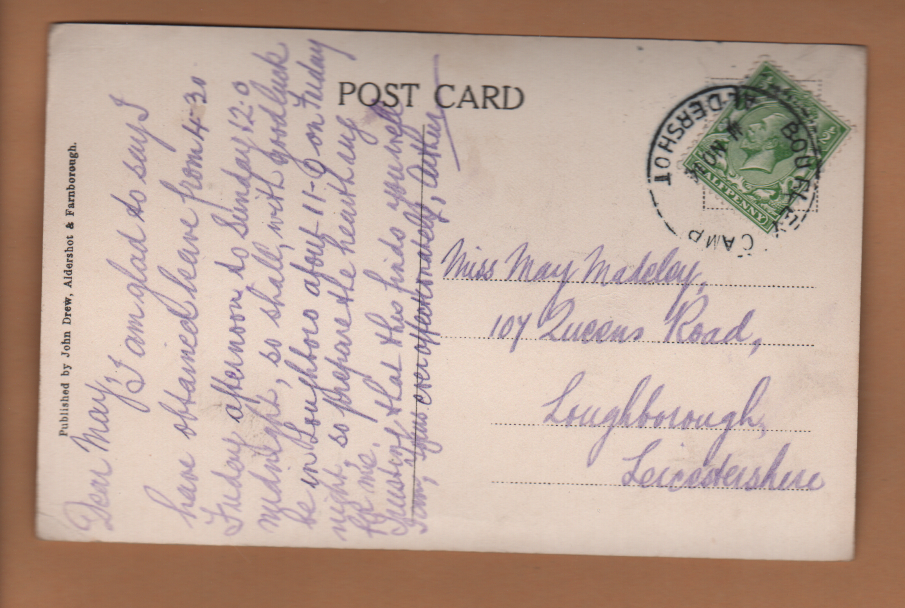 POST CARD
Published by John Drew, Aldershot & Farnborough.
Dear May,
I am glad to say I
have obtained leave from 4-30
Friday afternoon to Sunday 12-0
midnight, so shall, with good luck
be in Loughboro about 11-0 on Friday
night, so prepare the hearth rug
for me.
Trusting that this finds you well
yours ever affectionately, Arthur
Miss May Madeley,
107 Queens Road,
Loughborough,
Leicestershire
BOURLEY CAMP
ALDERSHOT
NO
HALFPENNY